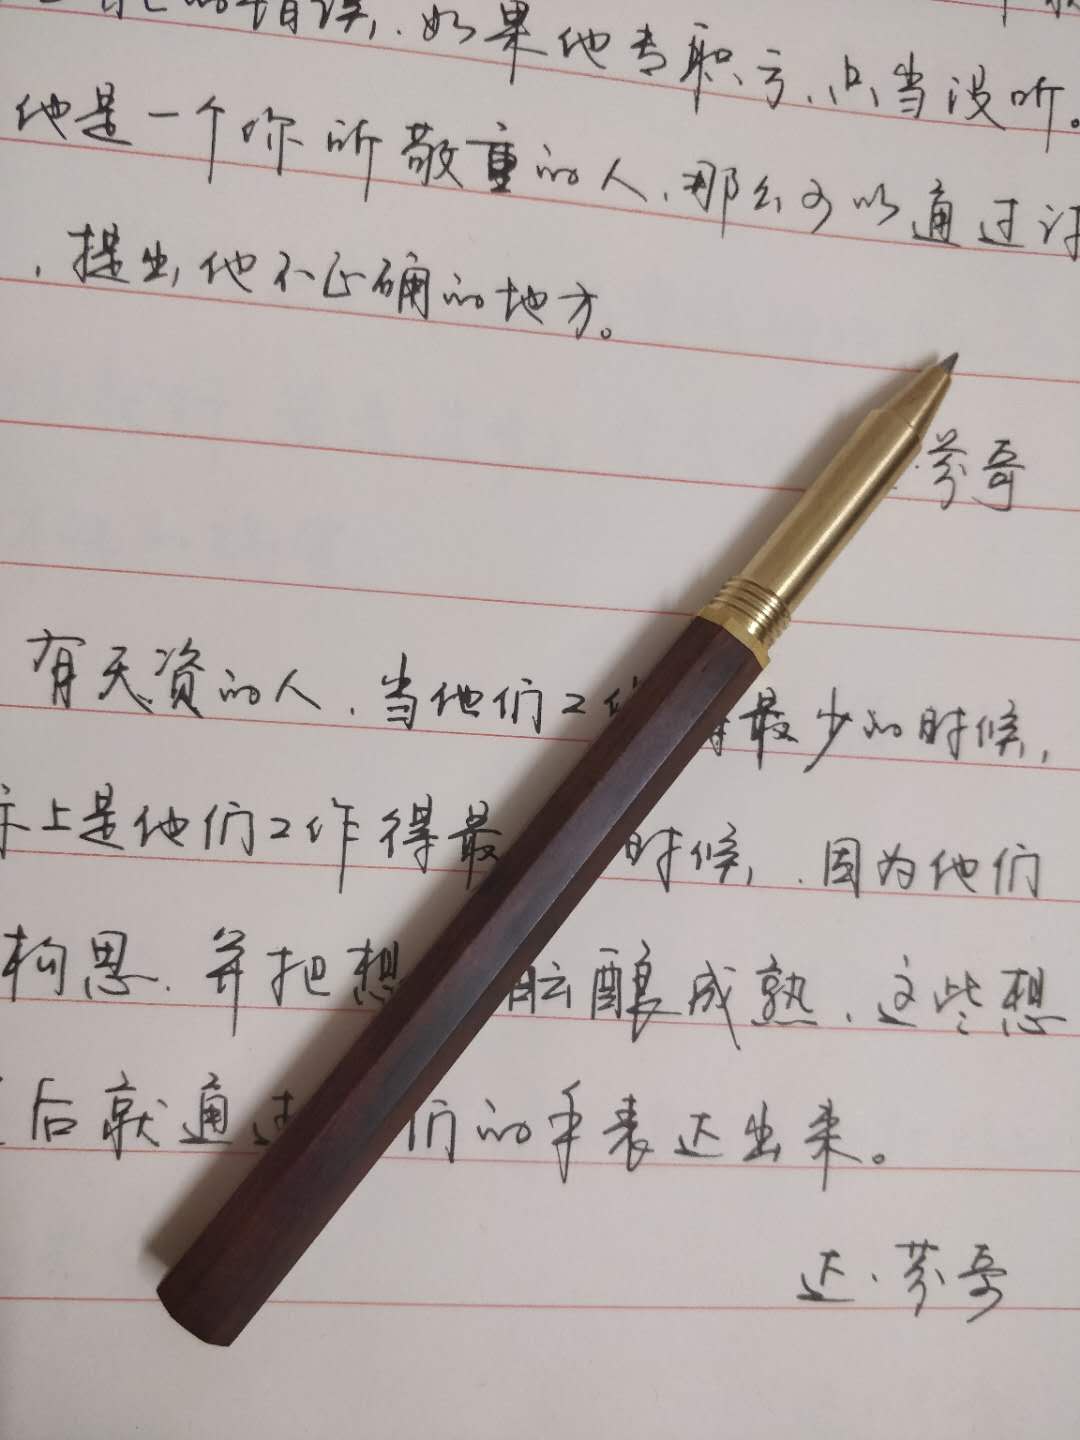 的错误，如果他专职亏，只当没听。
他是一个你所敬重的人，那么可以通过讨
，提出他不正确的地方。
·芬哥
有天资的人，当他们工作得最少的时候，
上是他们工作得最 时候，因为他们
构思，并把想 酝酿成熟，这些想
后就通过 们的手表达出来。
达·芬哥